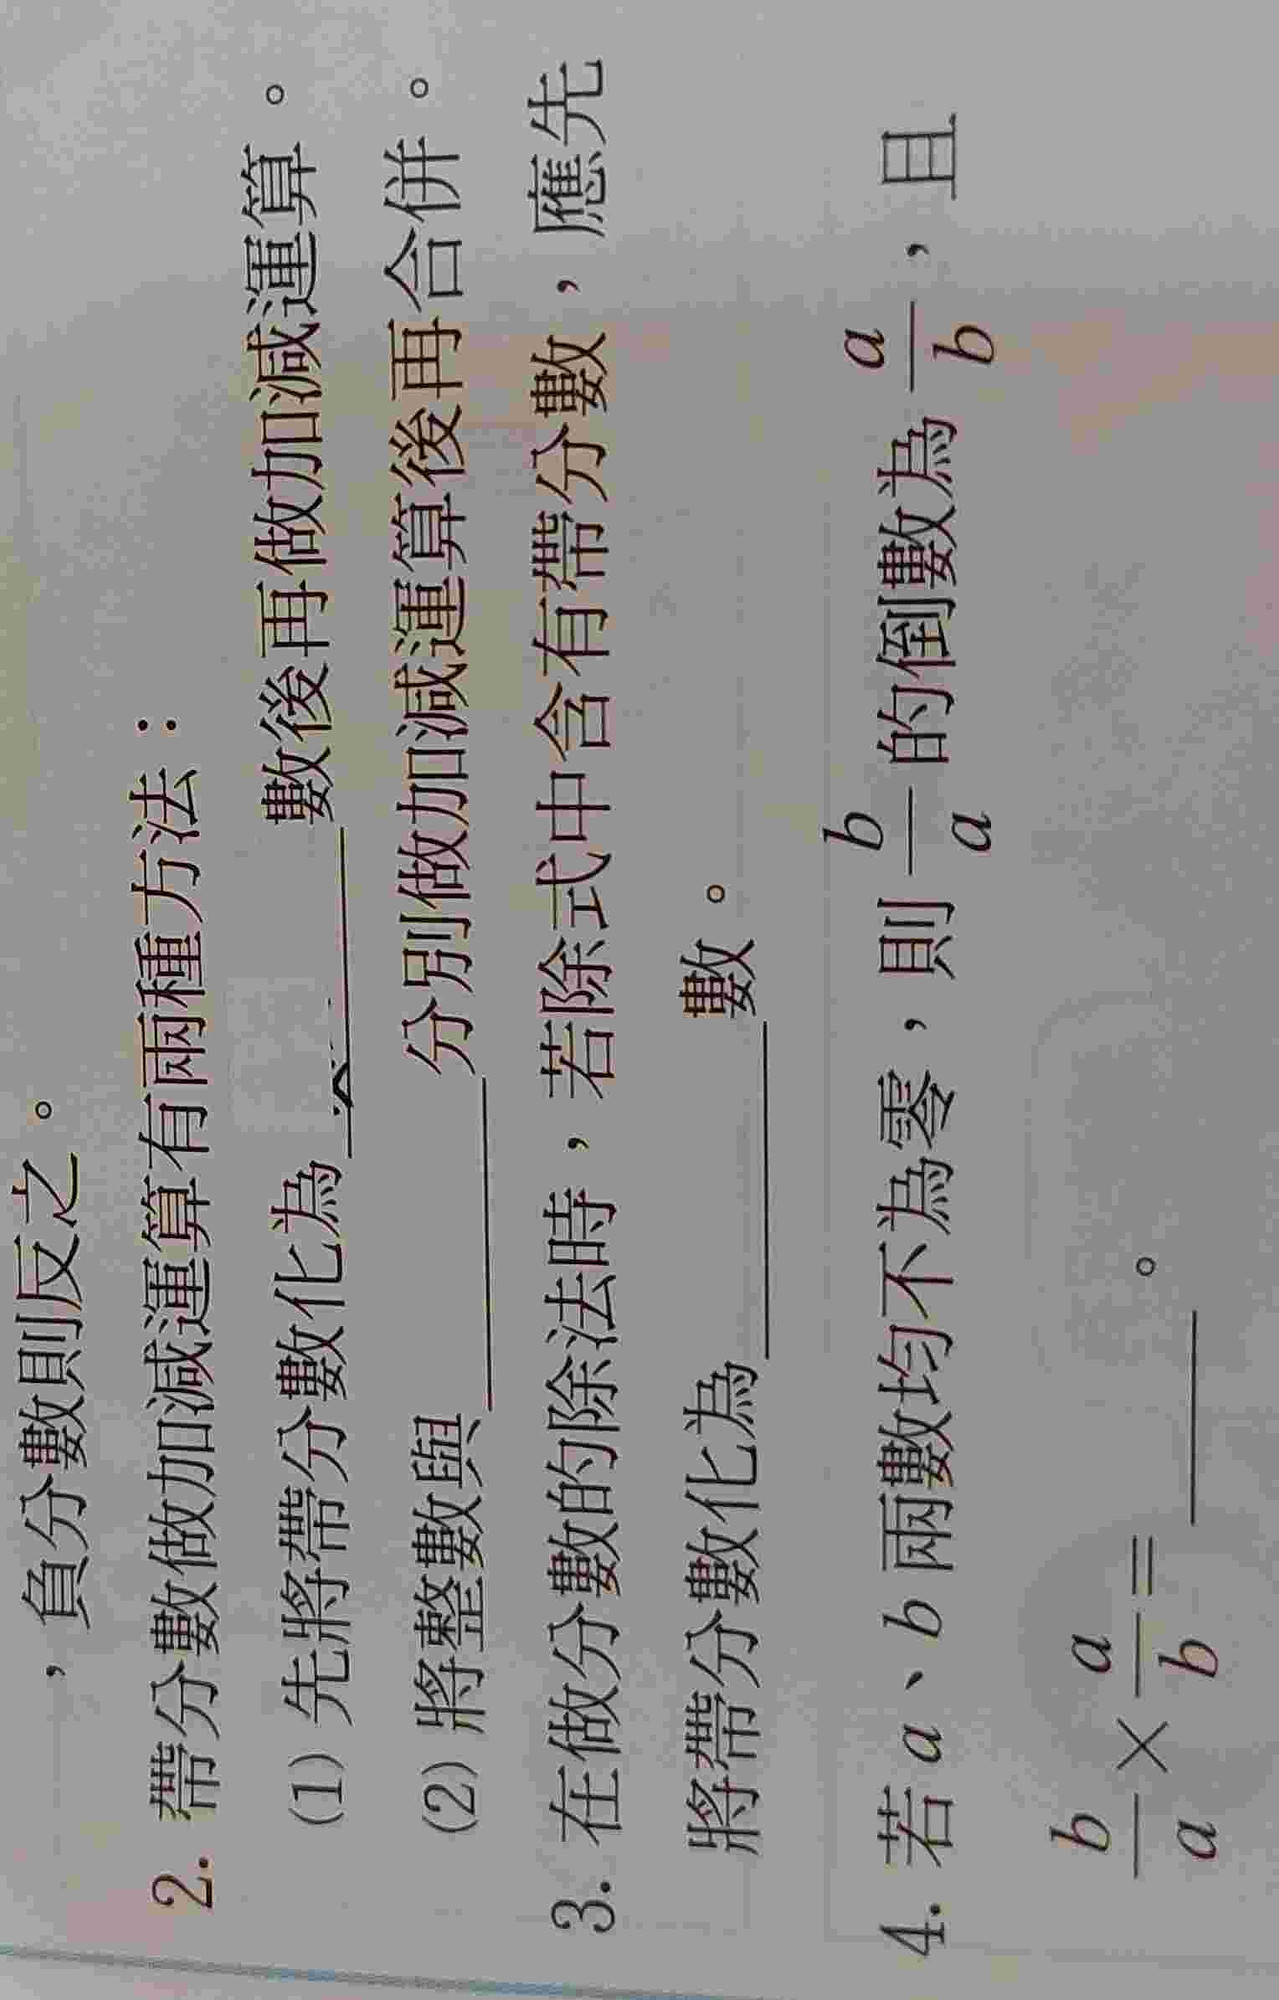 ，負分數則反之。
2. 帶分數做加減運算有兩種方法：
(1) 先將帶分數化為______數後再做加減運算。
(2) 將整數與______分別做加減運算後再合併。
3. 在做分數的除法時，若除式中含有帶分數，應先
將帶分數化為______數。
4. 若 a、b 兩數均不為零，則 b/a 的倒數為 a/b，且
b/a × a/b = ______。